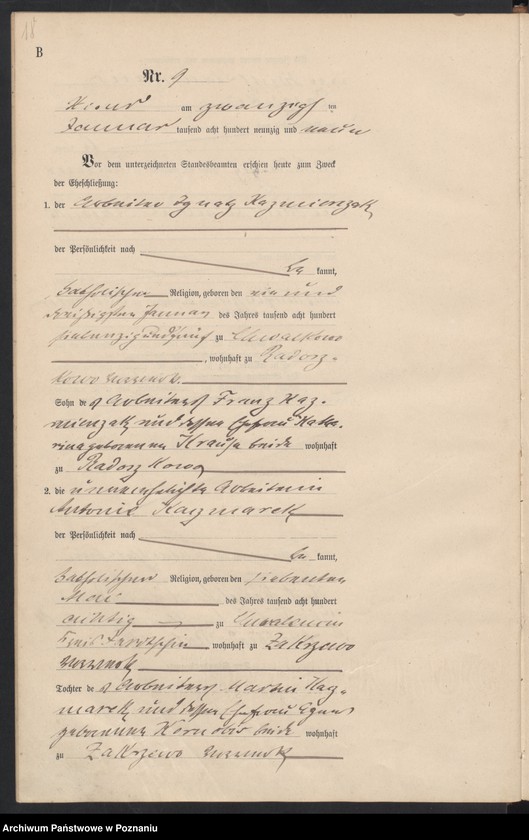 18
B
Nr. 9
am zwanzigsten
Januar tausend acht hundert neunzig und neun
Vor dem unterzeichneten Standesbeamten erschien heute zum Zweck
der Eheschließung:
1. der Arbeiter Ignatz Kazmierzak
der Persönlichkeit nach
be kannt,
katholischer Religion, geboren den ein und
dreißigsten Januar des Jahres tausend acht hundert
siebenzig und fünf zu Chwalkowo
, wohnhaft zu Radosz-
kowo
Sohn des Arbeiters Franz Kaz-
mierzak und dessen Ehefrau Katha-
rina geborenen Krause beide wohnhaft
zu Radoszkowo
2. die unverehelichte Arbeiterin
Antonie Kaczmarek
der Persönlichkeit nach
be kannt,
katholischer Religion, geboren den siebenten
Mai des Jahres tausend acht hundert
achtzig zu
Kreis Jarotschin wohnhaft zu Zakrzewo
Tochter des Arbeiters Martin Kacz-
marek und dessen Ehefrau Agnes
geborenen beide wohnhaft
zu Zakrzewo
Archiwum Państwowe w Poznaniu